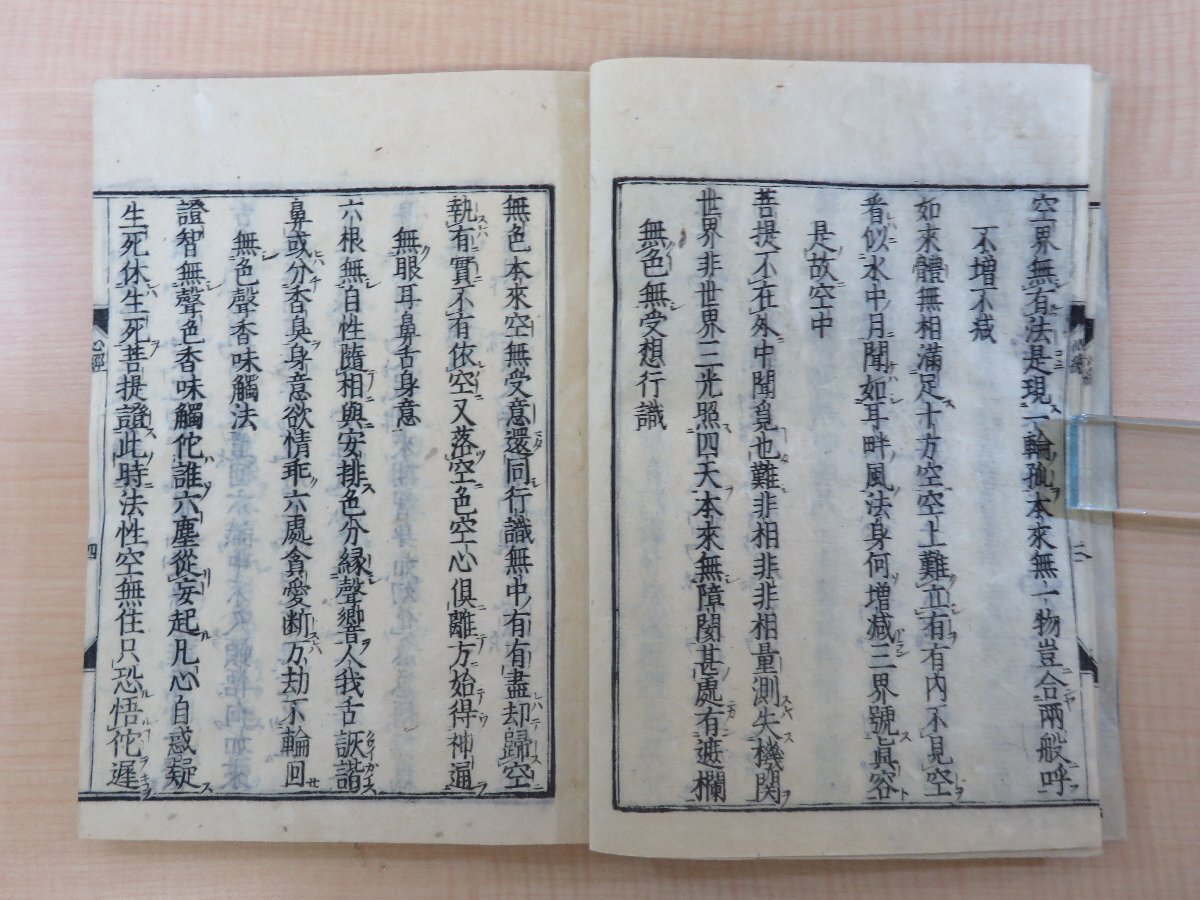 空界無有法是現一輪孤本來無一物豈合兩般呼
不增不減
如來體無相滿足十方空空上難立有有內不見空
看似水中月聞如耳畔風法身何增減三界號眞容
是故空中
菩提不在外中間覓也難非相非非相量測失機関
世界非世界三光照四天本來無障閡甚處有遮欄
無色無受想行識
無色本來空無受意還同行識無中有有盡却歸空
執有實不有依空又落空色空心俱離方始得神通
無眼耳鼻舌身意
六根無自性隨相與安排色分縁聲響人我舌詼諧
鼻或分香臭身意欲情乖六處貪愛断万劫不輪回
無色聲香味觸法
證智無聲色香味觸佗誰六塵從妄起凡心自惑疑
生死休生死菩提證此時法性空無住只恐悟佗遲
心經
四